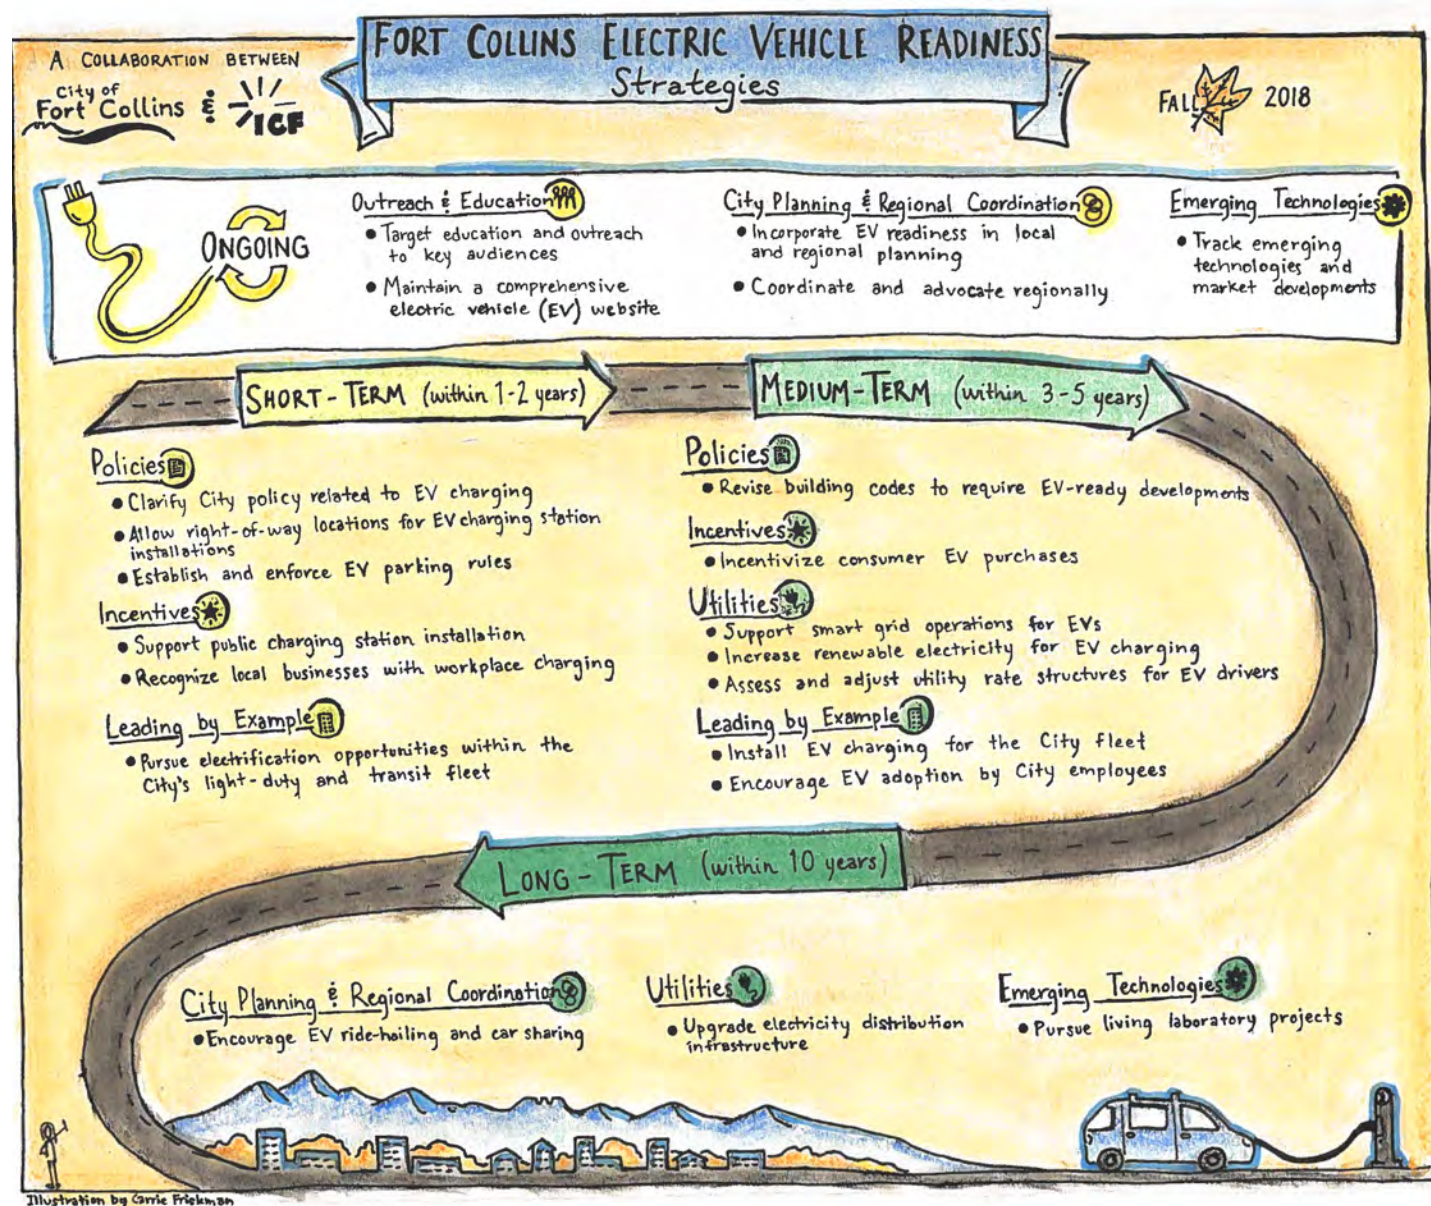 FORT COLLINS ELECTRIC VEHICLE READINESS
Strategies
A COLLABORATION BETWEEN
City of
Fort Collins & ICF
FALL 2018
ONGOING
Outreach & Education
• Target education and outreach
to key audiences
• Maintain a comprehensive
electric vehicle (EV) website
City Planning & Regional Coordination
• Incorporate EV readiness in local
and regional planning
• Coordinate and advocate regionally
Emerging Technologies
• Track emerging
technologies and
market developments
SHORT-TERM (within 1-2 years)
MEDIUM-TERM (within 3-5 years)
Policies
• Clarify City policy related to EV charging
• Allow right-of-way locations for EV charging station
installations
• Establish and enforce EV parking rules
Incentives
• Support public charging station installation
• Recognize local businesses with workplace charging
Leading by Example
• Pursue electrification opportunities within the
City's light-duty and transit fleet
Policies
• Revise building codes to require EV-ready developments
Incentives
• Incentivize consumer EV purchases
Utilities
• Support smart grid operations for EVs
• Increase renewable electricity for EV charging
• Assess and adjust utility rate structures for EV drivers
Leading by Example
• Install EV charging for the City fleet
• Encourage EV adoption by City employees
LONG-TERM (within 10 years)
City Planning & Regional Coordination
• Encourage EV ride-hailing and car sharing
Utilities
• Upgrade electricity distribution
infrastructure
Emerging Technologies
• Pursue living laboratory projects
Illustration by Carrie Friskman